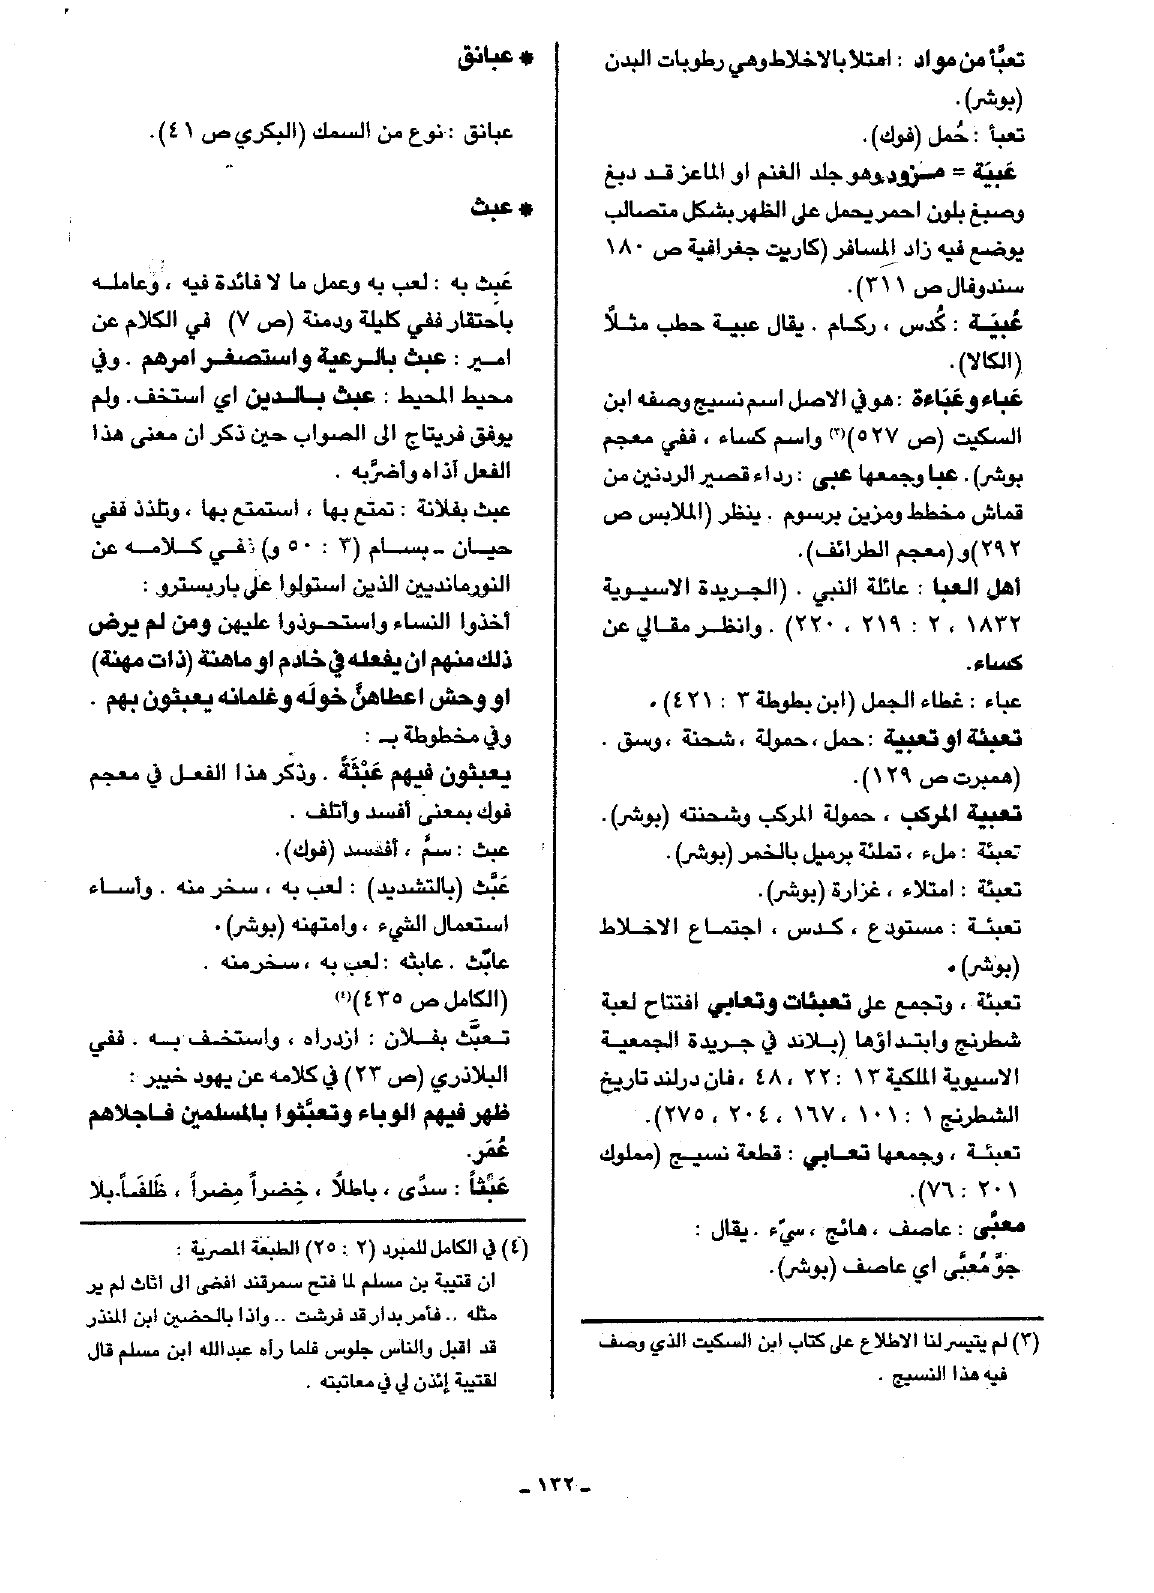 تعبَّأ من مواد : امتلا بالاخلاط وهي رطوبات البدن
(بوشر).
تعبأ : حُمل (فوك).
عَبيَة = مـزود وهو جلد الغنم او الماعز قد دبغ
وصبغ بلون احمر يحمل على الظهر بشكل متصالب
يوضع فيه زاد المسافر (كاريت جغرافية ص ١٨٠
سندوفال ص ٣١١).
عُبيَـة : كُدس ، ركام . يقال عبية حطب مثلاً
(الكالا).
عَباء وعَبَاءة : هو في الاصل اسم نسيج وصفه ابن
السكيت (ص ٥٢٧)(٣) واسم كساء ، ففي معجم
بوشر). عبا وجمعها عبي : رداء قصير الردنين من
قماش مخطط ومزين برسوم . ينظر (الملابس ص
٢٩٢) و(معجم الطرائف).
أهل العبا : عائلة النبي . (الجريدة الاسيوية
١٨٣٢ ، ٢ : ٢١٩ ، ٢٢٠) . وانظر مقالي عن
كساء.
عباء : غطاء الجمل (ابن بطوطة ٣ : ٤٢١) .
تعبئة او تعبية : حمل ، حمولة ، شحنة ، وسق .
(همبرت ص ١٢٩).
تعبية المركب ، حمولة المركب وشحنته (بوشر).
تعبئة : ملء ، تملئة برميل بالخمر (بوشر).
تعبئة : امتلاء ، غزارة (بوشر).
تعبئـة : مستودع ، كـدس ، اجتماع الاخـلاط
(بوشر) .
تعبئة ، وتجمع على تعبئات وتعابي افتتاح لعبة
شطرنج وابتداؤها (بلاند في جريدة الجمعية
الاسيوية الملكية ١٣ : ٢٢ ، ٤٨ ، فان درلند تاريخ
الشطرنج ١ : ١٠١ ، ١٦٧ ، ٢٠٤ ، ٢٧٥).
تعبئة ، وجمعها تعـابي : قطعة نسيج (مملوك
٢٠١ : ٧٦).
معبَّى : عاصف ، هائج ، سيّء . يقال :
جوَّ مُعبَّى اي عاصف (بوشر).
(٣) لم يتيسر لنا الاطلاع على كتاب ابن السكيت الذي وصف
فيه هذا النسيج .
* عبانق
عبانق : نوع من السمك (البكري ص ٤١).
* عبث
عَبِث به : لعب به وعمل ما لا فائدة فيه ، وعامله
باحتقار ففي كليلة ودمنة (ص ٧) في الكلام عن
امير : عبث بالـرعية واستصغـر امرهم . وفي
محيط المحيط : عبث بـالـدين اي استخف. ولم
يوفق فريتاج الى الصواب حين ذكر ان معنى هذا
الفعل آذاه وأضرَّ به .
عبث بفلانة : تمتع بها ، استمتع بها ، وتلذذ ففي
حيـان - بسـام (٣ : ٥٠ و) ففـي كـلامـه عن
النورمانديين الذين استولوا على باربسترو :
أخذوا النساء واستحوذوا عليهن ومن لم يرض
ذلك منهم ان يفعله في خادم او ماهنة (ذات مهنة)
او وحش اعطاهنَّ خولَه وغلمانه يعبثون بهم .
وفي مخطوطة بـ :
يعبثون فيهم عَبْثَةً . وذكر هذا الفعل في معجم
فوك بمعنى أفسد وأتلف .
عبث : سمَّ ، أفسد (فوك).
عَبَّث (بالتشديد) : لعب به ، سخر منه . وأساء
استعمال الشيء ، وامتهنه (بوشر).
عابَث . عابثه : لعب به ، سخر منه .
(الكامل ص ٤٣٥)(٤)
تعبَّث بفـلان : ازدراه ، واستخف بـه . ففي
البلاذري (ص ٢٣) في كلامه عن يهود خيبر :
ظهر فيهم الوباء وتعبَّثوا بالمسلمين فـاجلاهم
عُمَر.
عَبَثاً : سدًى ، باطلاً ، خِضراً مِضراً ، ظَلَفـاً، بلا
(٤) في الكامل للمبرد (٢ : ٢٥) الطبعة المصرية :
ان قتيبة بن مسلم لما فتح سمرقند افضى الى اثاث لم ير
مثله .. فأمر بدار قد فرشت .. واذا بالحضين ابن المنذر
قد اقبل والناس جلوس فلما رآه عبدالله ابن مسلم قال
لقتيبة إئذن لي في معاتبته .
ـ ١٣٢ ـ